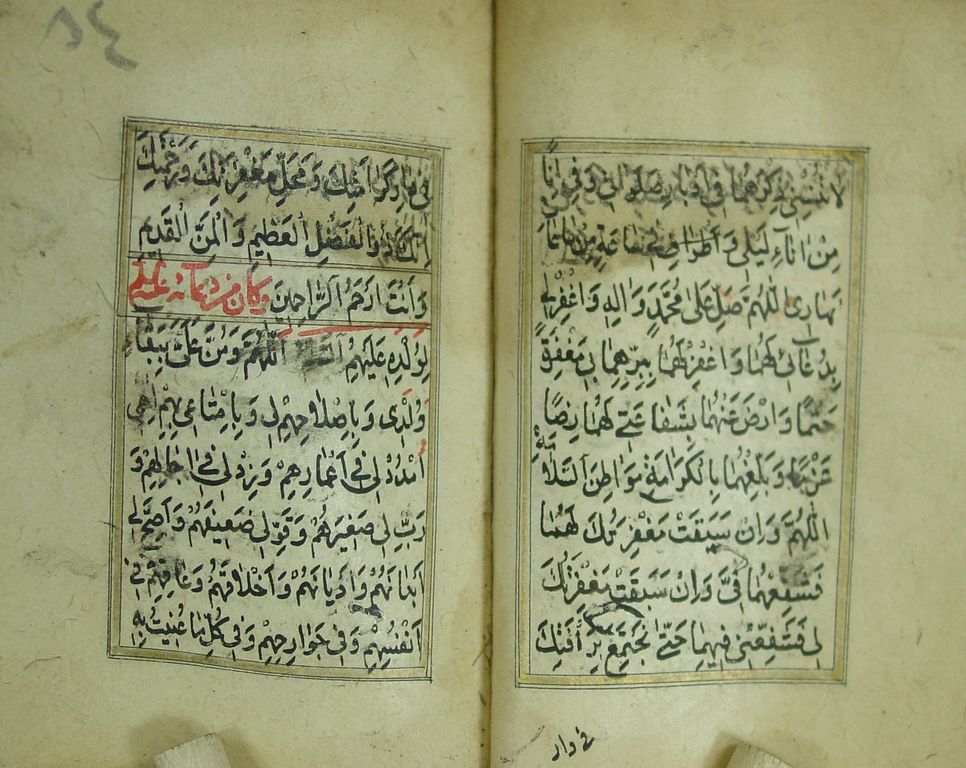 لا تنسني ذكرهما في ادبار صلواتي وفي انًا
مِنْ اٰنَآءِ لَيْلى وَ فى كل ساعة مِنْ ساعات
نَهارى اللّٰهُمَّ صَلِّ عَلىٰ مُحَمَّدٍ وَ الِهِ وَ اغْفِرْلى
بِدُعائى لَهُما وَ اغْفِرْ لَهُما بِبِرِّهِما بى مَغْفِرَةً
حَتْمًا وَ ارْضَ عَنْهُما بِشَفاعَتى لَهُما رِضًا
عَزْمًا وَ بَلِّغْهُما بِالْكَرامَةِ مَواطِنَ السَّلامَةِ
اَللّٰهُمَّ وَ اِنْ سَبَقَتْ مَغْفِرَتُكَ لَهُما
فَشَفِّعْهُما فِىَّ وَ اِنْ سَبَقَتْ مَغْفِرَتُكَ
لى فَشَفِّعْنى فيهِما حَتّٰى نَجْتَمِعَ بِرَأفَتِكَ
فى دار
٨٤
فى دارِ كَرامَتِكَ وَ مَحَلِّ مَغْفِرَتِكَ وَ رَحْمَتِكَ
اِنَّكَ ذُو الْفَضْلِ الْعَظيمِ وَ الْمَنِّ الْقَديمِ
وَ اَنْتَ اَرْحَمُ الرّٰاحِمينَ وَ كانَ مِنْ دُعآئِهِ عليه السلم
لِوُلْدِهِ عَلَيْهِمُ اَللّٰهُمَّ وَ مُنَّ عَلَىَّ بِبَقاءِ
وُلْدى وَ بِاِصْلاحِهِمْ لى وَ بِاِمْتاعى بِهِمْ اِلٰهى
اُمْدُدْ لى فى اَعْمارِهِمْ وَ زِدْ لى فى اٰجالِهِمْ وَ
رَبِّ لى صَغيرَهُمْ وَ قَوِّ لى ضَعيفَهُمْ وَ اَصِحَّ لى
اَبْدانَهُمْ وَ اَدْيانَهُمْ وَ اَخْلاقَهُمْ وَ عافِهِمْ فى
اَنْفُسِهِمْ وَ فى جَوارِحِهِمْ وَ فى كُلِّ ما عُنيتُ بِهِ